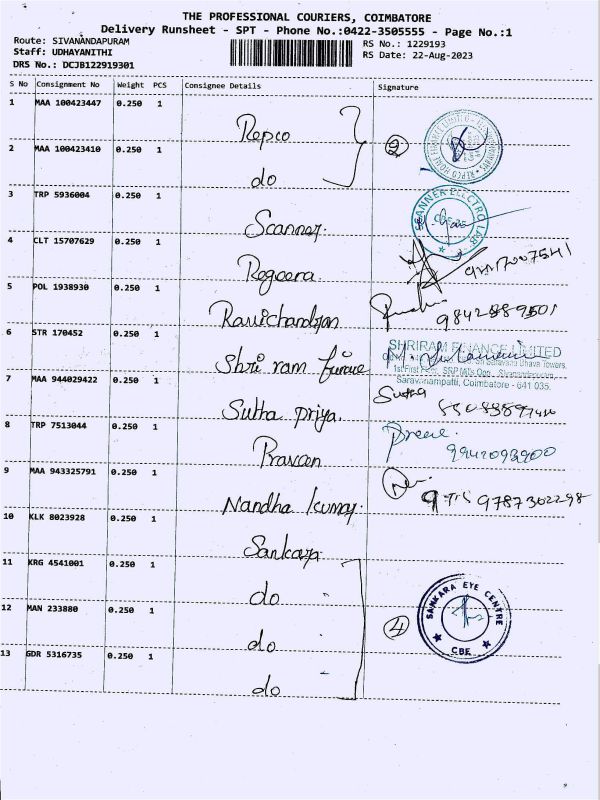 THE PROFESSIONAL COURIERS, COIMBATORE
Delivery Runsheet - SPT - Phone No.:0422-3505555 - Page No.:1
Route: SIVANANDAPURAM
Staff: UDHAYANITHI
DRS No.: DCJB122919301
RS No.: 1229193
RS Date: 22-Aug-2023
S No Consignment No Weight PCS Consignee Details Signature
1 MAA 100423447 0.250 1 Repco
2 MAA 100423410 0.250 1 do
2
3 TRP 5936004 0.250 1 Scanner.
SCANNER ELECTRO LAB
4 CLT 15707629 0.250 1 Rogeera
5 POL 1938930 0.250 1 Ravichandran
6 STR 170452 0.250 1 Shri ram
SHRIRAM FINANCE LIMITED
Saravanampatti, Coimbatore - 641 035.
7 MAA 944029422 0.250 1 Sutha priya.
Sutha
8 TRP 7513044 0.250 1 Pravan
9942093900
9 MAA 943325791 0.250 1 Nandha kumar.
9787302298
10 KLK 8023928 0.250 1 Sankara
11 KRG 4541001 0.250 1 do
12 MAN 233880 0.250 1 do
4
SANKARA EYE CENTRE
CBE
13 GDR 5316735 0.250 1 do